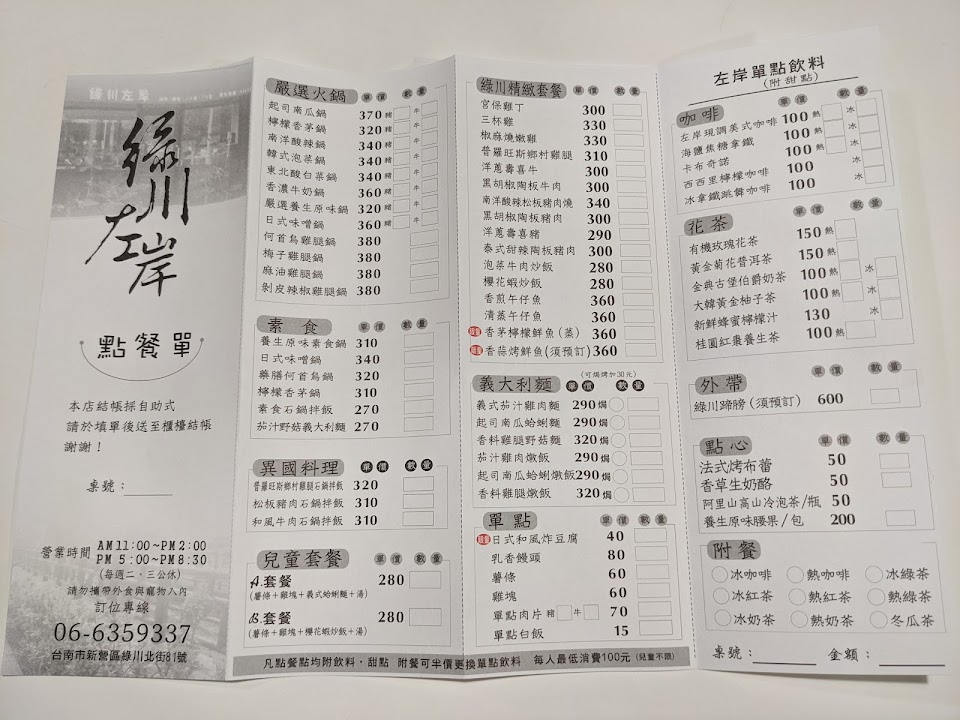 綠川左岸
綠川
左岸
點餐單
本店結帳採自助式
請於填單後送至櫃檯結帳
謝謝！
桌號：
營業時間 AM 11:00~PM 2:00
PM 5:00~PM 8:30
(每週二、三公休)
請勿攜帶外食與寵物入內
訂位專線
06-6359337
台南市新營區綠川北街81號
嚴選火鍋 單價 數量
起司南瓜鍋 370 豬 牛
檸檬香茅鍋 320 豬 牛
南洋酸辣鍋 340 豬 牛
韓式泡菜鍋 340 豬 牛
東北酸白菜鍋 340 豬 牛
香濃牛奶鍋 360 豬 牛
嚴選養生原味鍋 320 豬 牛
日式味噌鍋 360 豬 牛
何首烏雞腿鍋 380
梅子雞腿鍋 380
麻油雞腿鍋 380
剝皮辣椒雞腿鍋 380
素食 單價 數量
養生原味素食鍋 310
日式味噌鍋 340
藥膳何首烏鍋 320
檸檬香茅鍋 310
素食石鍋拌飯 270
茄汁野菇義大利麵 270
異國料理 單價 數量
普羅旺斯鄉村雞腿石鍋拌飯 320
松板豬肉石鍋拌飯 310
和風牛肉石鍋拌飯 310
兒童套餐 單價 數量
A.套餐 280
(薯條+雞塊+義式蛤蜊麵+湯)
B.套餐 280
(薯條+雞塊+櫻花蝦炒飯+湯)
綠川精緻套餐 單價 數量
宮保雞丁 300
三杯雞 330
椒麻燒嫩雞 330
普羅旺斯鄉村雞腿 310
洋蔥壽喜牛 300
黑胡椒陶板牛肉 300
南洋酸辣松板豬肉燒 340
黑胡椒陶板豬肉 300
洋蔥壽喜豬 290
泰式甜辣陶板豬肉 300
泡菜牛肉炒飯 280
櫻花蝦炒飯 280
香煎午仔魚 360
清蒸午仔魚 360
香茅檸檬鮮魚(蒸) 360
香蒜烤鮮魚(須預訂) 360
(可焗烤加30元)
義大利麵 單價 數量
義式茄汁雞肉麵 290 焗
起司南瓜蛤蜊麵 290 焗
香料雞腿野菇麵 320 焗
茄汁雞肉燉飯 290 焗
起司南瓜蛤蜊燉飯 290 焗
香料雞腿燉飯 320 焗
單點 單價 數量
日式和風炸豆腐 40
乳香饅頭 80
薯條 60
雞塊 60
單點肉片 豬 牛 70
單點白飯 15
凡點餐點均附飲料、甜點 附餐可半價更換單點飲料 每人最低消費100元 (兒童不限)
左岸單點飲料
(附甜點)
咖啡 單價 數量
左岸現調美式咖啡 100 熱 冰
海鹽焦糖拿鐵 100 熱 冰
卡布奇諾 100 熱 冰
西西里檸檬咖啡 100 冰
冰拿鐵跳舞咖啡 100
花茶 單價 數量
有機玫瑰花茶 150 熱
黃金菊花普洱茶 150 熱
金典古堡伯爵奶茶 100 熱 冰
大韓黃金柚子茶 100 熱 冰
新鮮蜂蜜檸檬汁 130 冰
桂圓紅棗養生茶 100 熱
外帶 單價 數量
綠川蹄膀(須預訂) 600
點心 單價 數量
法式烤布蕾 50
香草生奶酪 50
阿里山高山冷泡茶/瓶 50
養生原味腰果/包 200
附餐
冰咖啡 熱咖啡 冰綠茶
冰紅茶 熱紅茶 熱綠茶
冰奶茶 熱奶茶 冬瓜茶
桌號： 金額：